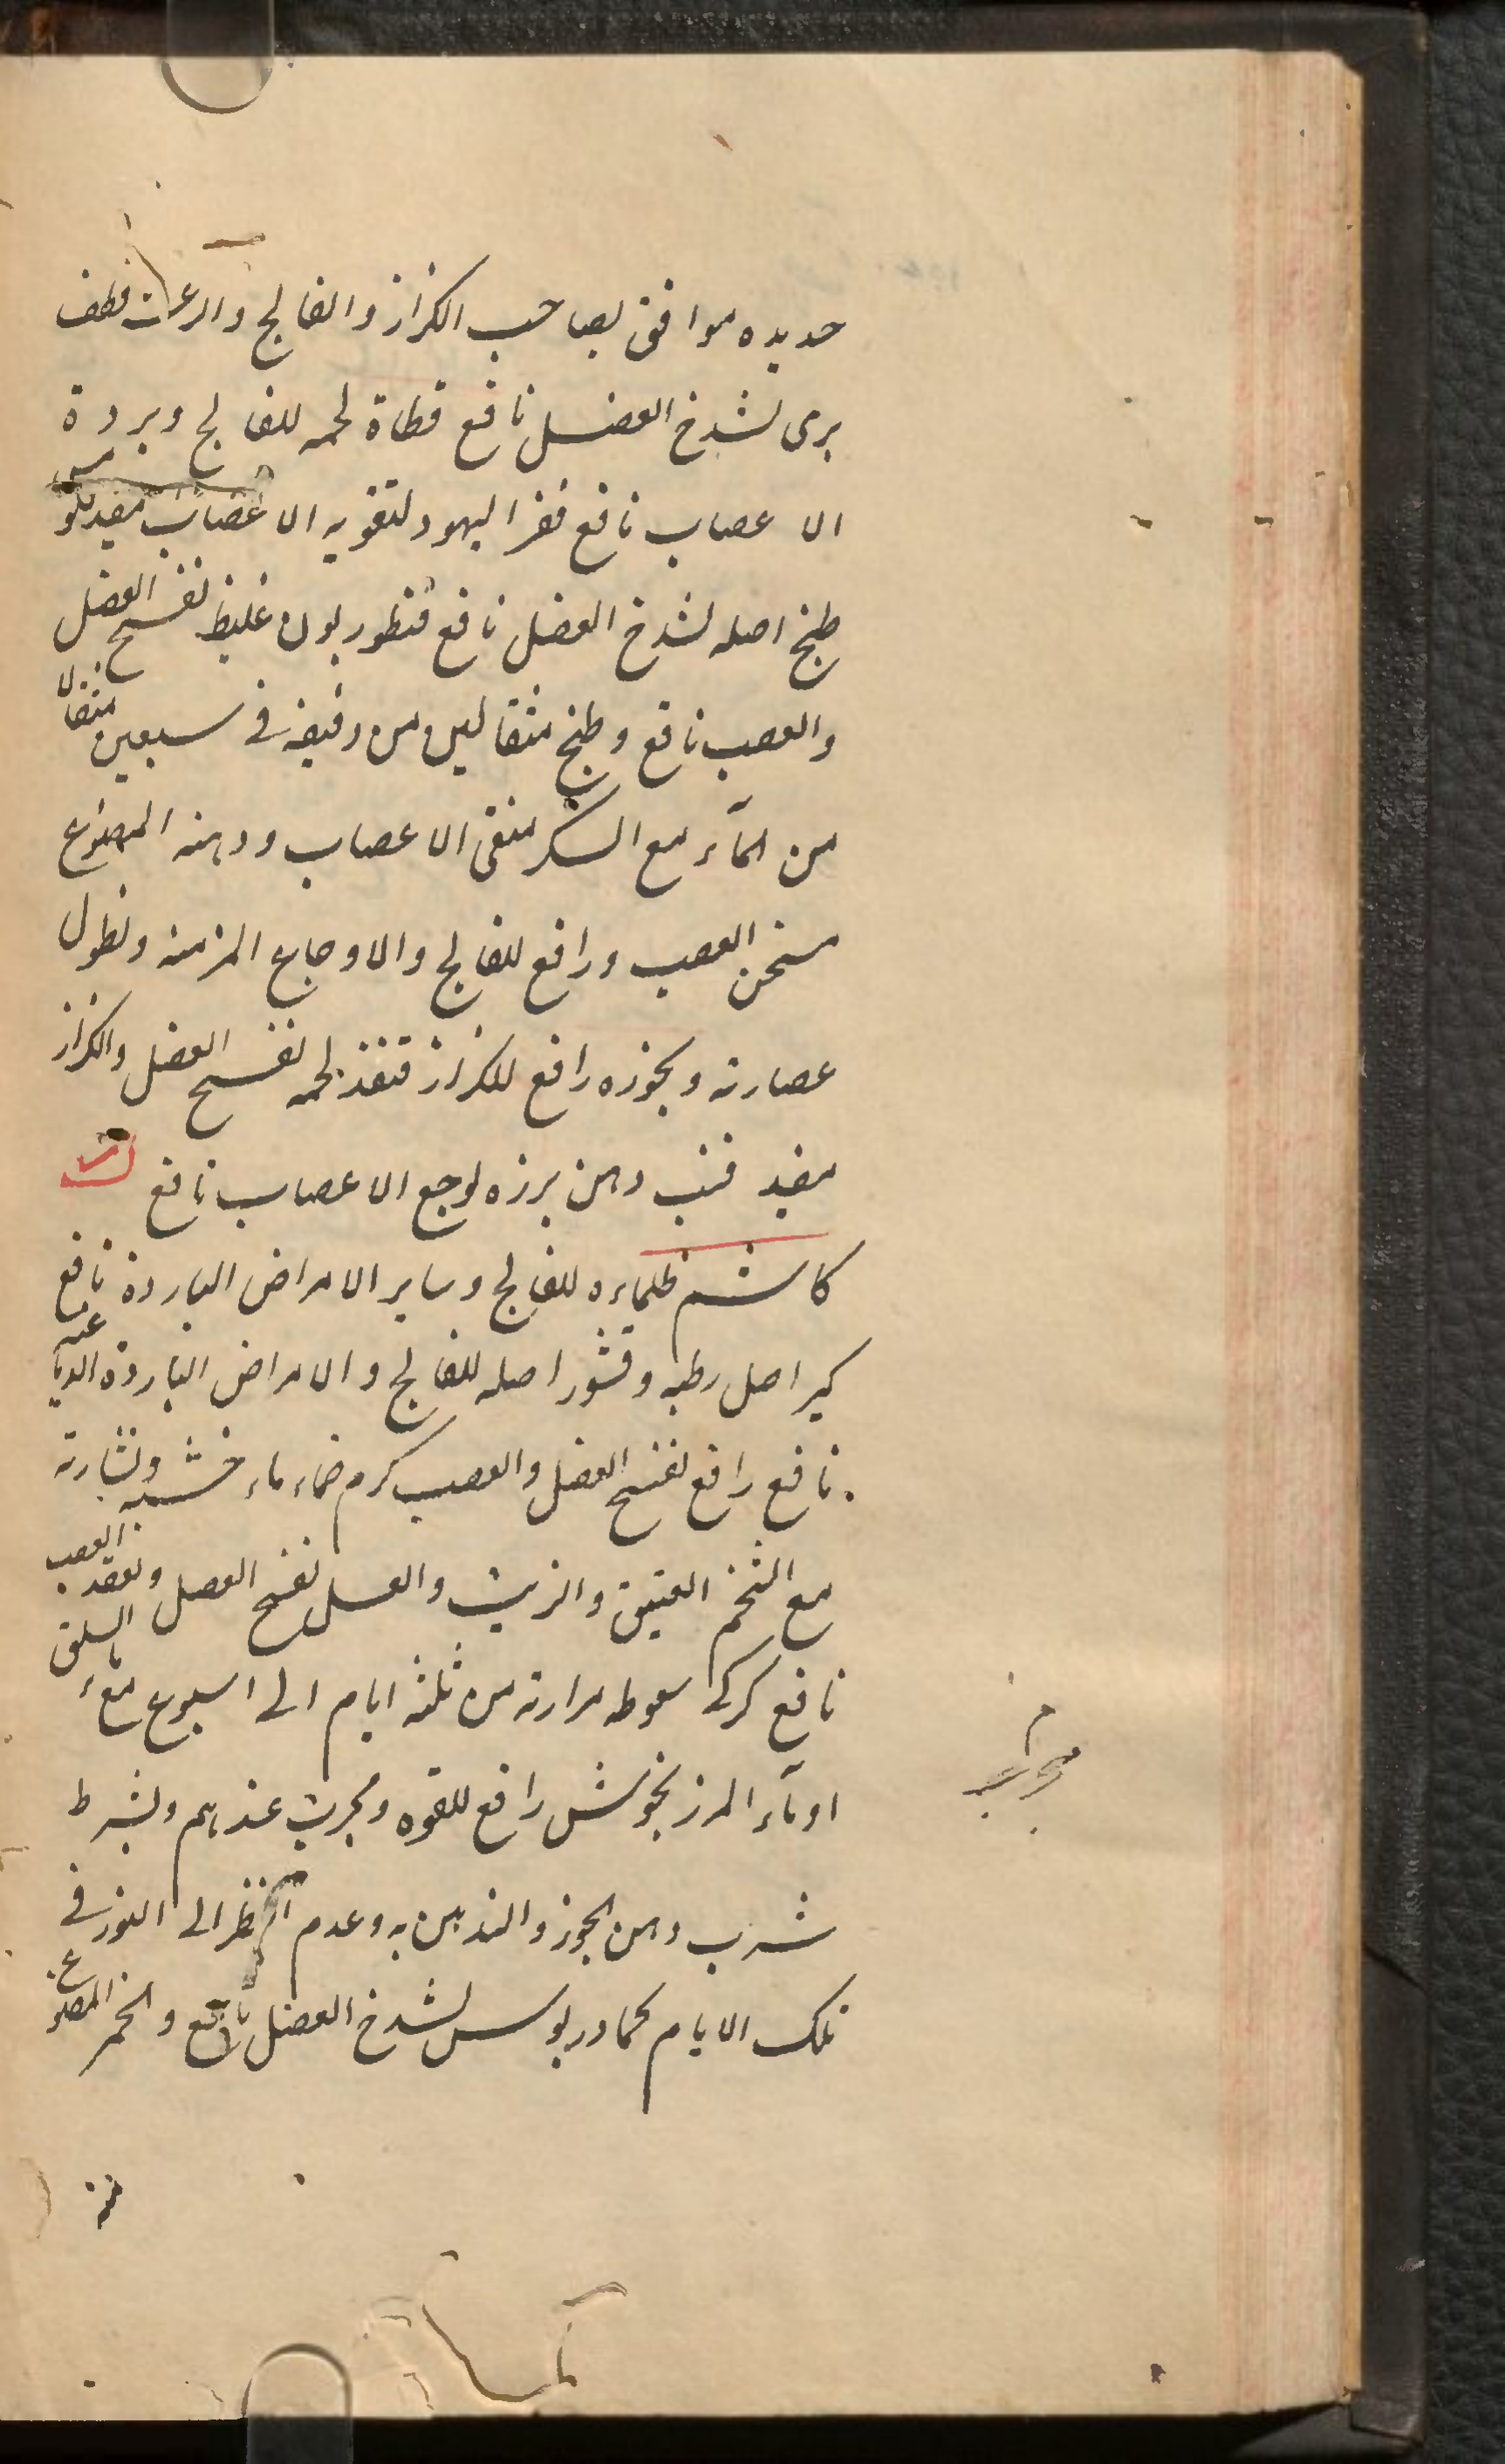 حديده موافق لصاحب الكزاز والفالج والرعشه قطف
برى لشدخ العضل نافع قطاة لحمه للفالج وبردة
الاعصاب نافع قفر اليهود لتقويه الاعصاب مفيد
طبخ اصله لشدخ العضل نافع قنطوريون غليظ لفسخ العضل
والعصب نافع وطبخ مثقالين من دقيقه فى سبعين مثقالا
من المآء مع السكر منقى الاعصاب ودهنه المصنوع
مسخن العصب ورافع للفالج والاوجاع المزمنه ونطول
عصارته وبخوره رافع للكزاز قنفذ لحمه لفسخ العضل والكزاز
مفيد قنب دهن بزره لوجع الاعصاب نافع ك
كاشم طلاءه للفالج وساير الامراض الباردة نافع
كبر اصل رطبه وقشور اصله للفالج والامراض الباردة الدماغيه
نافع رافع لفسخ العضل والعصب كرم ضماد ماء خشبه ونشارته
مع الشحم العتيق والزيت والعسل لفسخ العضل وتعقد العصب
نافع كركى سعوط مرارته من ثلثه ايام الى اسبوع مع مآء السلق
او مآء المرزنجوش رافع للقوه ومجرب عندهم وبشرط
شرب دهن الجوز والتدهين به وعدم النظر الى النور فى
تلك الايام كمادريوس لشدخ العضل نافع والخمر المصنوع
منه
مجرب